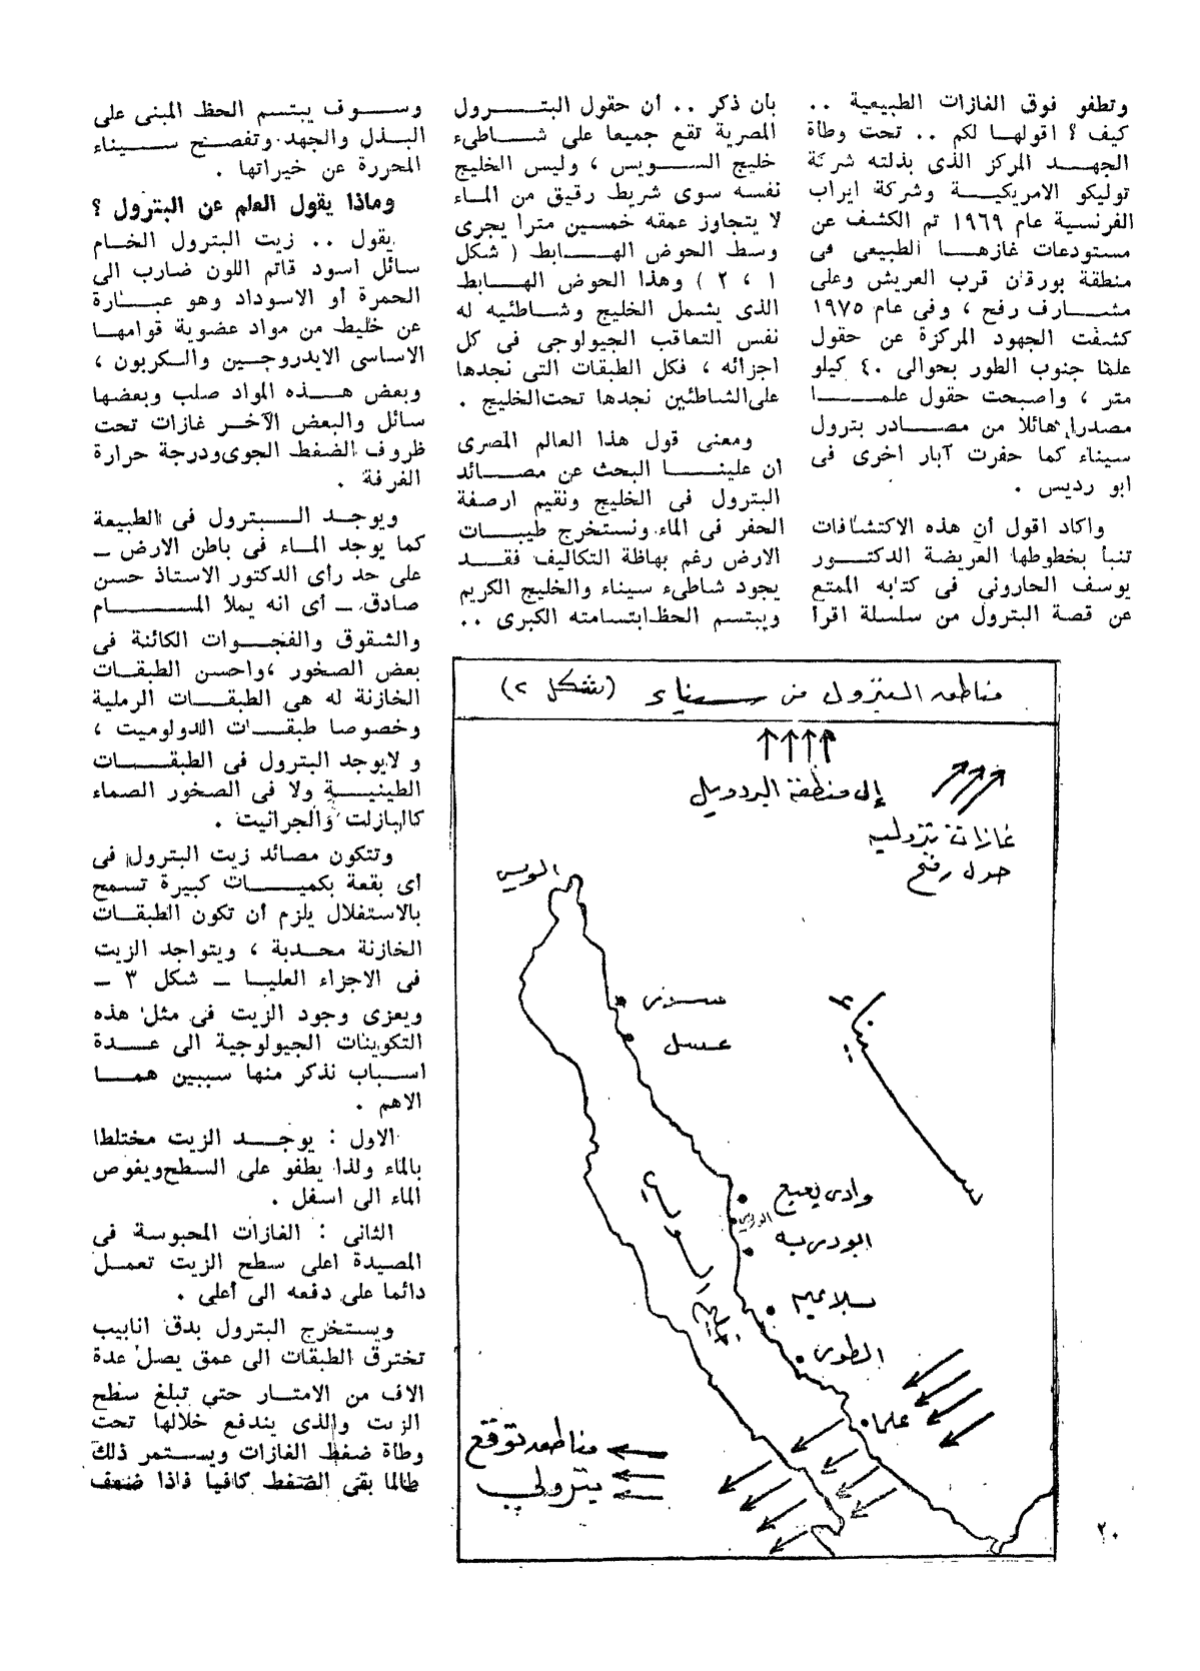 وتطفو فوق الغازات الطبيعية ..
كيف ؟ اقولها لكم .. تحت وطأة
الجهد المركز الذى بذلته شركة
توليكو الامريكية وشركة ايراب
الفرنسية عام ١٩٦٩ تم الكشف عن
مستودعات غازها الطبيعي فى
منطقة بورقان قرب العريش وعلى
مشارف رفح ، وفى عام ١٩٧٥
كشفت الجهود المركزة عن حقول
علما جنوب الطور بحوالى ٤٠ كيلو
متر ، واصبحت حقول علما
مصدرا هائلا من مصادر بترول
سيناء كما حفرت آبار اخرى فى
ابو رديس .
واكاد اقول أن هذه الاكتشافات
تنبأ بخطوطها العريضة الدكتور
يوسف الحارونى فى كتابه الممتع
عن قصة البترول من سلسلة اقرأ
بأن ذكر .. أن حقول البترول
المصرية تقع جميعا على شاطىء
خليج السويس ، وليس الخليج
نفسه سوى شريط رقيق من الماء
لا يتجاوز عمقه خمسين مترا يجرى
وسط الحوض الهابط ( شكل
١ ، ٢ ) وهذا الحوض الهابط
الذى يشمل الخليج وشاطئيه له
نفس التعاقب الجيولوجى فى كل
اجزائه ، فكل الطبقات التى نجدها
على الشاطئين نجدها تحت الخليج .
ومعنى قول هذا العالم المصرى
أن علينا البحث عن مصائد
البترول فى الخليج ونقيم ارصفة
الحفر فى الماء ونستخرج طيبات
الارض رغم بهاظة التكاليف فقد
يجود شاطىء سيناء والخليج الكريم
ويبتسم الحظ ابتسامته الكبرى ..
وسوف يبتسم الحظ المبنى على
البذل والجهد وتفصح سيناء
المحررة عن خيراتها .
وماذا يقول العلم عن البترول ؟
يقول .. زيت البترول الخام
سائل اسود قاتم اللون ضارب الى
الحمرة أو الاسوداد وهو عبارة
عن خليط من مواد عضوية قوامها
الاساسى الايدروجين والكربون ،
وبعض هذه المواد صلب وبعضها
سائل والبعض الآخر غازات تحت
ظروف الضغط الجوى ودرجة حرارة
الغرفة .
ويوجد البترول فى الطبيعة
كما يوجد الماء فى باطن الارض -
على حد رأى الدكتور الاستاذ حسن
صادق - أى انه يملأ المسام
والشقوق والفجوات الكائنة فى
بعض الصخور ، واحسن الطبقات
الخازنة له هى الطبقات الرملية
وخصوصا طبقات الدولوميت ،
و لايوجد البترول فى الطبقات
الطينية ولا فى الصخور الصماء
كالبازلت والجرانيت .
وتتكون مصائد زيت البترول فى
أى بقعة بكميات كبيرة تسمح
بالاستغلال يلزم أن تكون الطبقات
الخازنة محدبة ، ويتواجد الزيت
فى الاجزاء العليا - شكل ٣ -
ويعزى وجود الزيت فى مثل هذه
التكوينات الجيولوجية الى عدة
اسباب نذكر منها سببين هما
الاهم .
الاول : يوجد الزيت مختلطا
بالماء ولذا يطفو على السطح ويغوص
الماء الى اسفل .
الثانى : الغازات المحبوسة فى
المصيدة اعلى سطح الزيت تعمل
دائما على دفعه الى أعلى .
ويستخرج البترول بدق انابيب
تخترق الطبقات الى عمق يصل عدة
الاف من الامتار حتى تبلغ سطح
الزيت والذى يندفع خلالها تحت
وطاة ضغط الغازات ويستمر ذلك
طالما بقى الضغط كافيا فاذا ضعف
مناطق البترول من سيناء (شكل ٢)
إلى منطقة البردويل
غازات بترولية
حول رفح
السويس
سدرى
عسل
سيناء
وادى
خليج السويس
الطور
علما
مناطق توقع
بترولى
٢٠